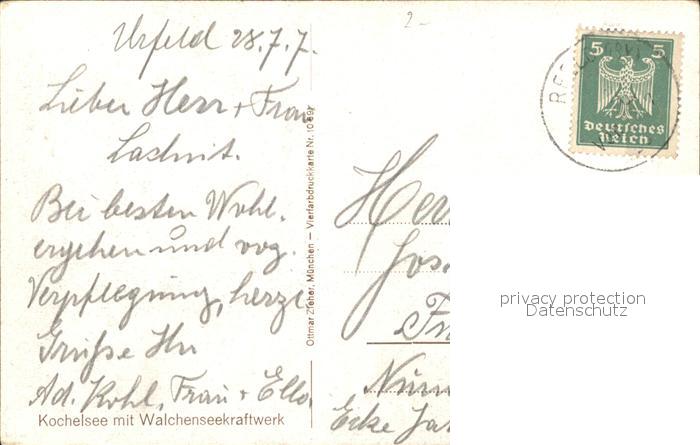 Urfeld 28.7.7.
Lieber Herr + Frau
Lachnit.
Bei besten Wohl-
ergehen und vog.
Verpflegung, herzl.
Grüße Ihr
Ad. Kohl, Frau + Ella.
Kochelsee mit Walchenseekraftwerk
Ottmar Zieher, München — Vierfarbdruckkarte Nr. 10
2-
5 5
Deutsches
Reich
Herr
Jos
Nürn
Ecke
privacy protection
Datenschutz